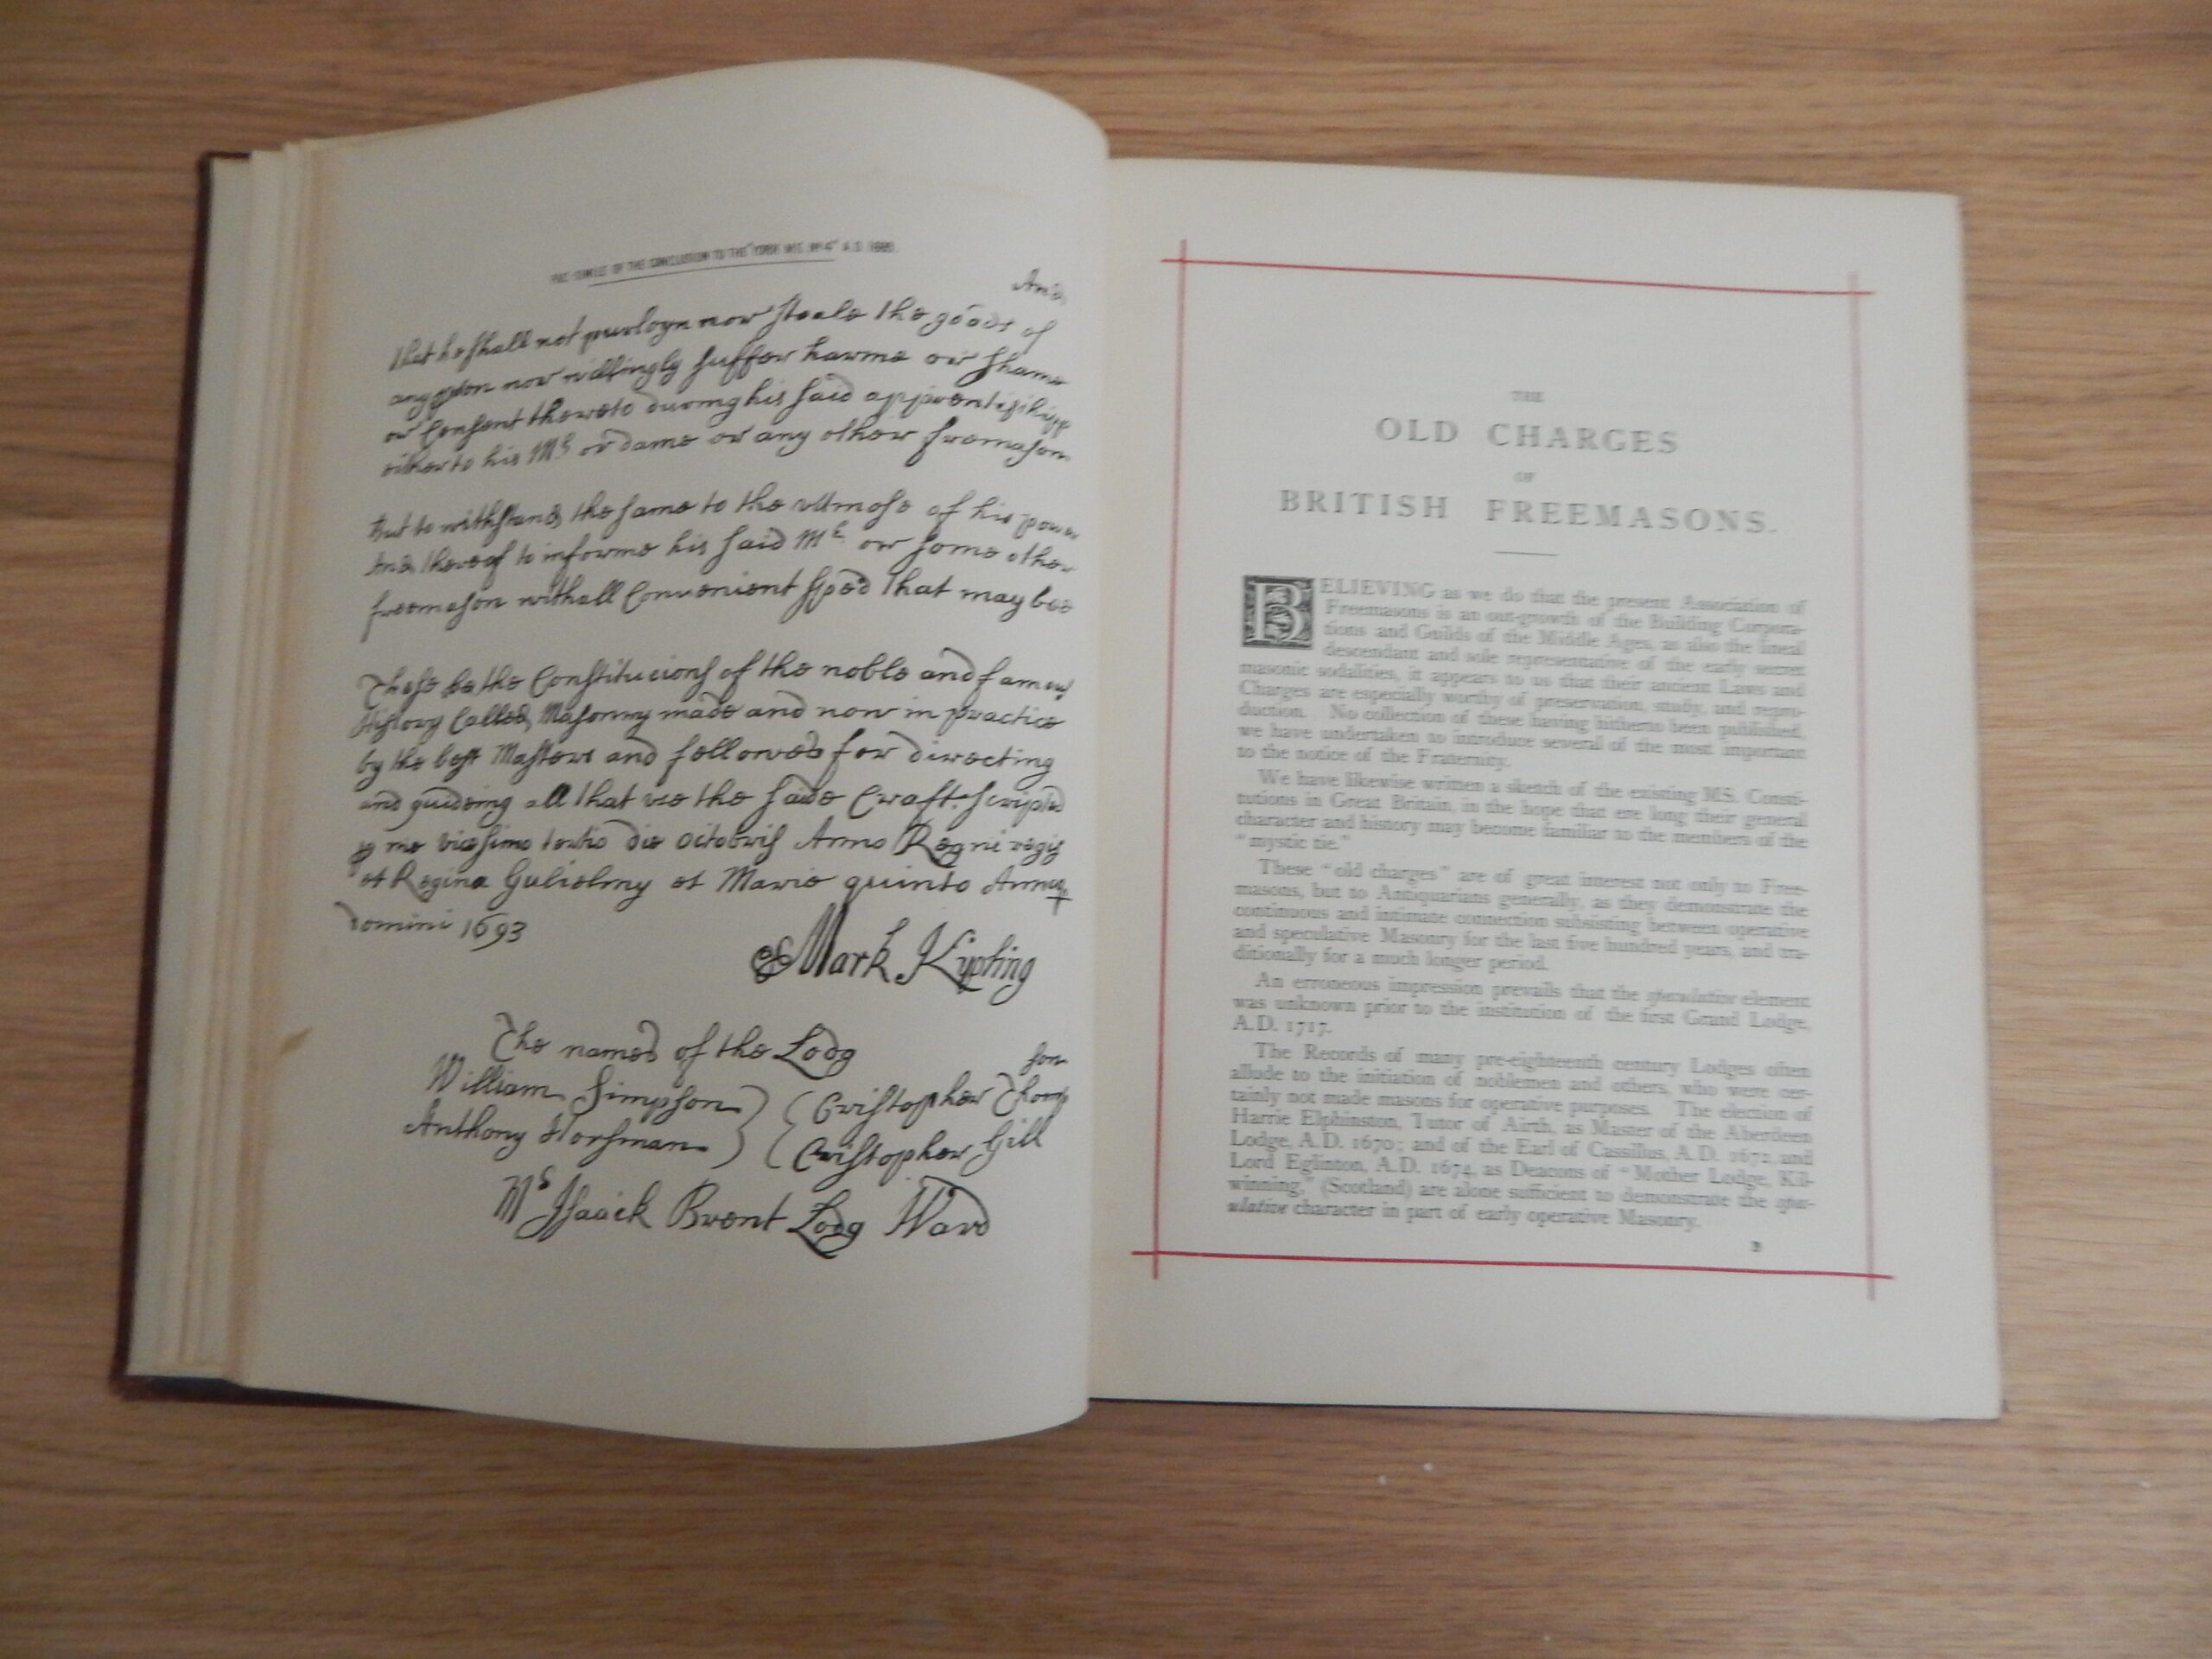 FAC-SIMILE OF THE CONCLUSION TO THE "YORK M.S. Nº 4" A.D. 1693.
And
that he shall not purloyn nor steale the goods of
any nor willingly suffer harme or shame
or Consent thereto during his said apprentiship
either to his Mr or dame or any other freemason
But to withstand the same to the utmose of his power
And thereof to informe his said Mr or some other
freemason withall Convenient speed that may bee
These be the Constitucions of the noble and famous
History Called Masonry made and now in practice
by the best Masters and fellowes for directing
and guideing all that use the saide Craft. Scripted
p me vicesimo tertio die Octobris Anno Regni regis
et Regina Gulielmy et Marie quinto Annoq
Domini 1693
Mark Kipling
The names of the Lodg
William Simpson Cristopher Thompson
Anthony Horsman Cristopher Gill
Mr Isaack Brent Lodg Ward
THE
OLD CHARGES
OF
BRITISH FREEMASONS.
BELIEVING as we do that the present Association of
Freemasons is an out-growth of the Building Corpora-
tions and Guilds of the Middle Ages, as also the lineal
descendant and sole representative of the early secret
masonic sodalities, it appears to us that their ancient Laws and
Charges are especially worthy of preservation, study, and repro-
duction. No collection of these having hitherto been published,
we have undertaken to introduce several of the most important
to the notice of the Fraternity.
We have likewise written a sketch of the existing MS. Consti-
tutions in Great Britain, in the hope that ere long their general
character and history may become familiar to the members of the
"mystic tie."
These "old charges" are of great interest not only to Free-
masons, but to Antiquarians generally, as they demonstrate the
continuous and intimate connection subsisting between operative
and speculative Masonry for the last five hundred years, and tra-
ditionally for a much longer period.
An erroneous impression prevails that the speculative element
was unknown prior to the institution of the first Grand Lodge,
A.D. 1717.
The Records of many pre-eighteenth century Lodges often
allude to the initiation of noblemen and others, who were cer-
tainly not made masons for operative purposes. The election of
Harrie Elphinston, Tutor of Airth, as Master of the Aberdeen
Lodge, A.D. 1670; and of the Earl of Cassillus, A.D. 1672, and
Lord Eglinton, A.D. 1674, as Deacons of "Mother Lodge, Kil-
winning," (Scotland) are alone sufficient to demonstrate the spec-
ulative character in part of early operative Masonry.